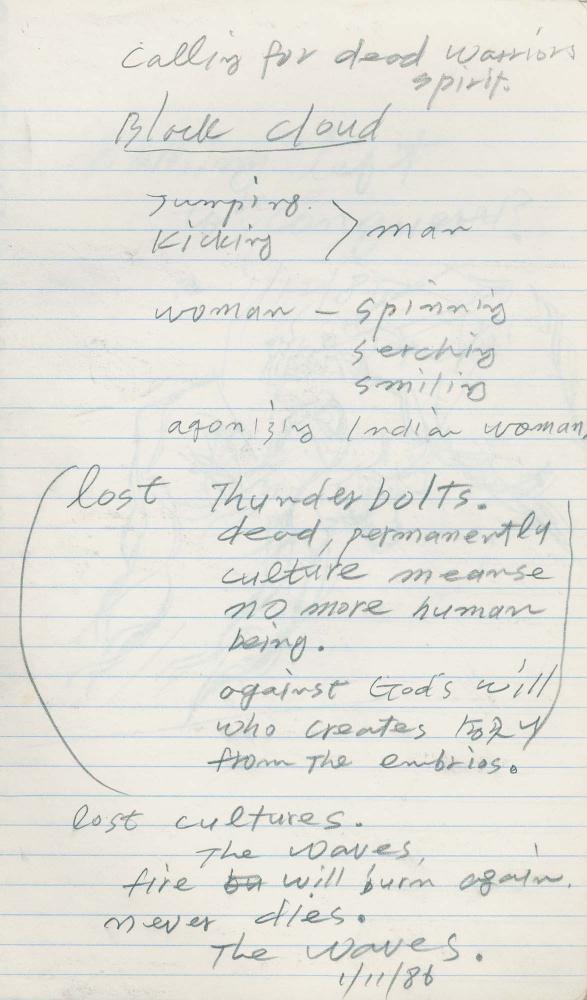 Calling for dead warriors
spirit.
Black cloud
Jumping.
Kicking > man
woman – spinning
serching
smiling
agonizing Indian woman,
(lost Thunderbolts.
dead, permanently
culture meanse
no more human
being.
against God's will
who creates
from The embrios.
lost cultures.
The waves,
fire ba will burn again.
never dies.
The waves.
1/11/86